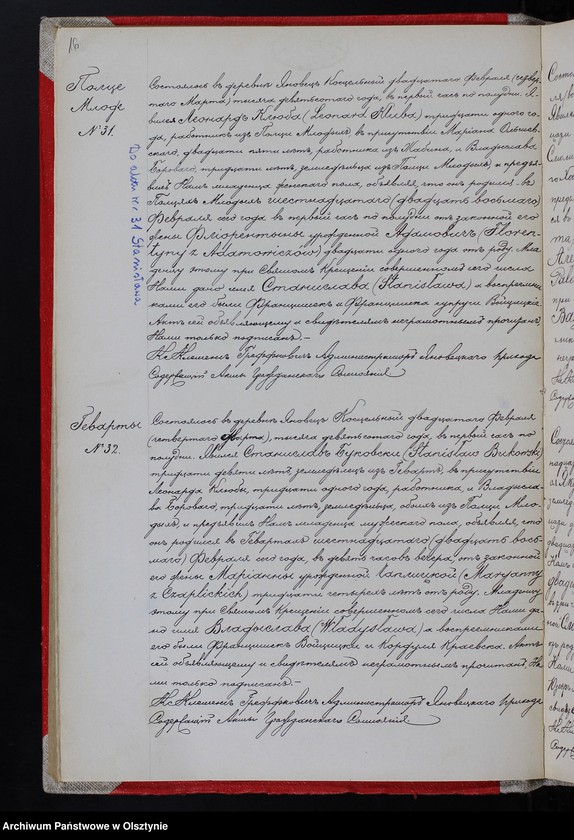 16
Полце
Млоде
№ 31.
Do aktu nr 31 Stanisława
Состоялось въ деревнѣ Яновецъ Косцельный двадцатаго Февраля (четвер-
таго Марта) тысяча девятьсотаго года, въ первый часъ по полудни. Я-
вился Леонардъ Клюба (Leonard Kluba) тридцати одного го-
да, работникъ изъ Полци Млодыхъ въ присутствіи Маріана
двадцати пяти лѣтъ, работника изъ и Владислава
Бороваго, тридцати лѣтъ, земледѣльца изъ Полци Млодыхъ, и предъя-
вилъ Намъ младенца женскаго пола, объявляя, что онъ родился въ
Полцяхъ Млодыхъ шестнадцатаго (двадцать восьмаго)
Февраля сего года въ первый часъ по полудни отъ законной его
жены Флорентыны урожденной Адамовичъ (Floren-
tyny z Adamowiczów) двадцати одного года отъ роду. Мла-
денцу этому при Святомъ Крещеніи совершенномъ сего числа
Нами дано имя Станислава (Stanisława) а воспремни-
ками его были Францишекъ и Францишка супруги Войцицкіе.
Актъ сей объявляющему и свидѣтелямъ неграмотнымъ прочитанъ,
Нами только подписанъ.—
Кс. Клеменсъ Администраторъ Яновецкаго прихода
Содержащій Акты Гражданскаго Состоянія
Геварты
№ 32.
Состоялось въ деревнѣ Яновецъ Косцельный двадцатаго Февраля
(четвертаго Марта), тысяча девятьсотаго года, въ первый часъ по
полудни. Явился Станиславъ Буковски (Stanisław Bukowski)
тридцати девяти лѣтъ, земледѣлецъ изъ Гевартъ, въ присутствіи
Леонарда Клюбы, тридцати одного года, работника, и Владисла-
ва Бороваго, тридцати лѣтъ, земледѣльца, обоихъ изъ Полци Мло-
дыхъ, и предъявилъ Намъ младенца мужескаго пола, объявляя, что
онъ родился въ Гевартахъ шестнадцатаго (двадцать вось-
маго) Февраля сего года, въ девять часовъ вечера, отъ законной
его жены Маріанны урожденной Чаплицкой (Maryanny
z Czaplickich) тридцати четырехъ лѣтъ отъ роду. Младенцу
этому при Святомъ Крещеніи совершенномъ сего числа Нами да-
но имя Владыслава (Władysława) а воспремниками
его были Францишекъ Войцицки и Корнелія Краевска. Актъ
сей объявляющему и свидѣтелямъ неграмотнымъ прочитанъ, На-
ми только подписанъ.—
Кс. Клеменсъ Администраторъ Яновецкаго прихода
Содержащій Акты Гражданскаго Состоянія
Archiwum Państwowe w Olsztynie